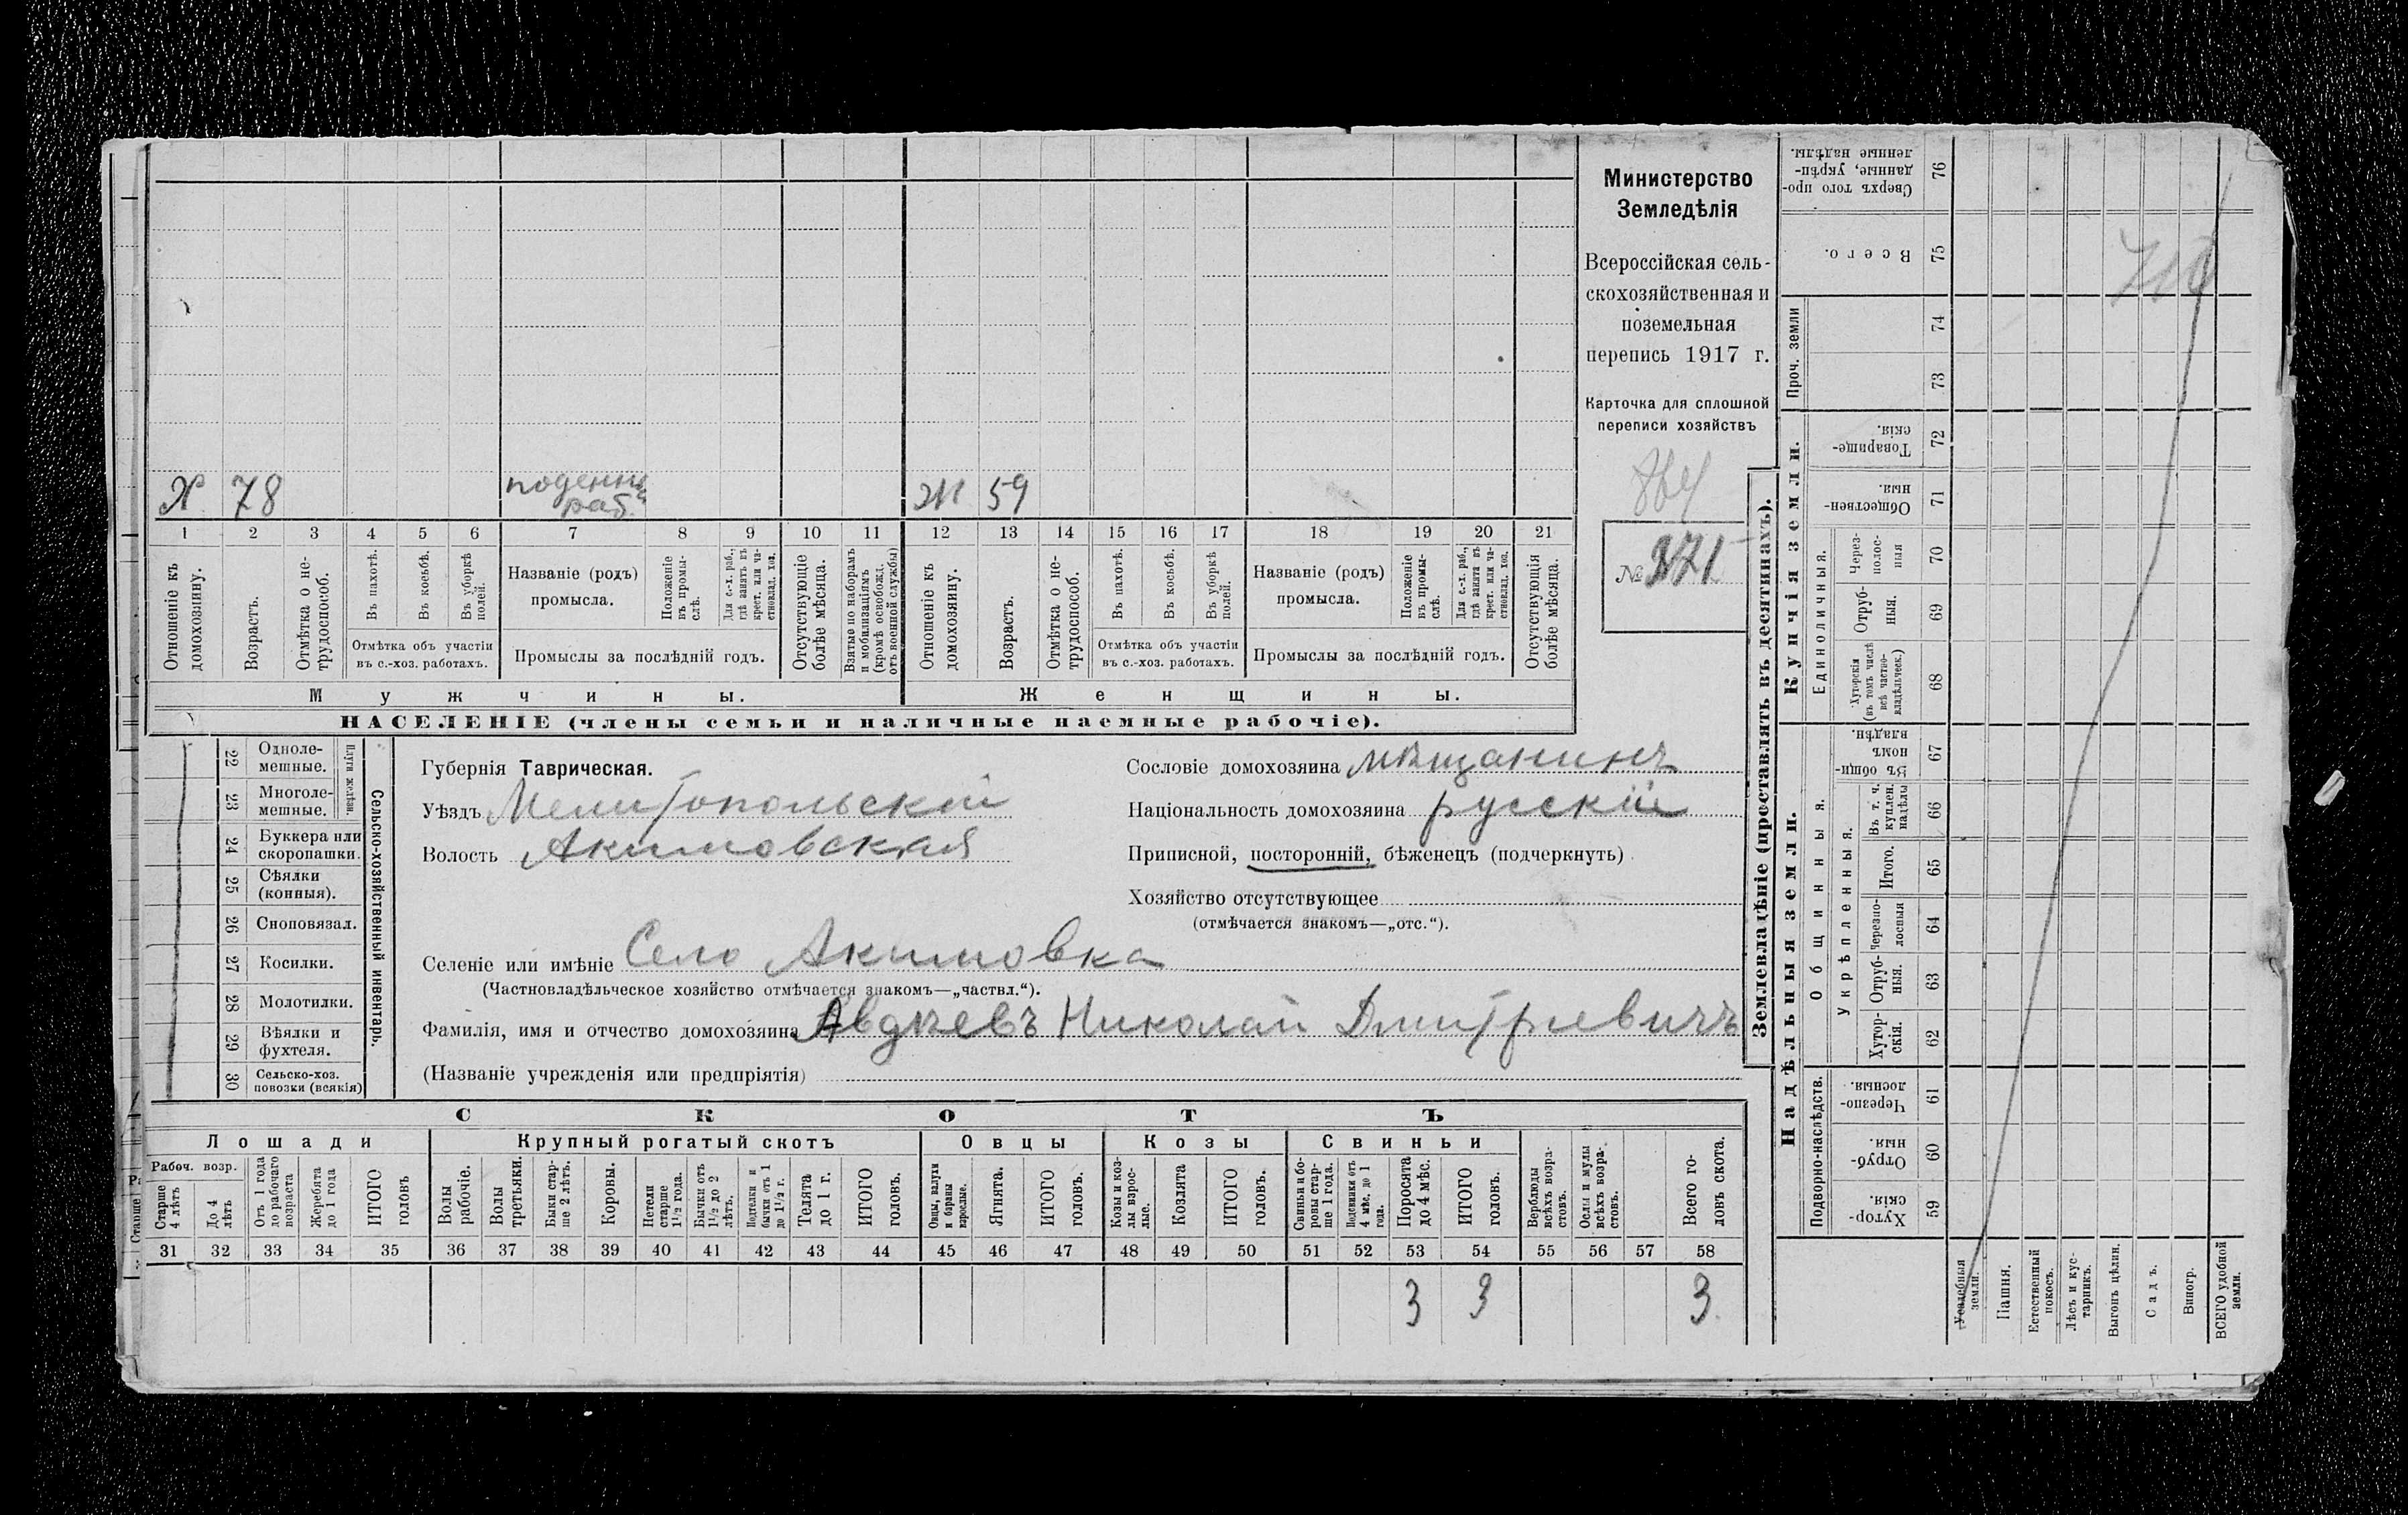 Министерство
Земледѣлія
Всероссійская сель-
скохозяйственная и
поземельная
перепись 1917 г.
Карточка для сплошной
переписи хозяйствъ
№ 371
Х 78 поденн раб. Ж 59
1 2 3 4 5 6 7 8 9 10 11 12 13 14 15 16 17 18 19 20 21
Отношеніе къ домохозяину.
Возрастъ.
Отмѣтка о не-трудоспособ.
Въ пахотѣ.
Въ косьбѣ.
Въ уборкѣ полей.
Отмѣтка объ участіи
въ с.-хоз. работахъ.
Названіе (родъ)
промысла.
Положеніе въ промы-слѣ.
Для с.-х. раб., гдѣ занятъ въ крест. или ча-стновлад. хоз.
Промыслы за послѣдній годъ.
Отсутствующіе болѣе мѣсяца.
Взятые по наборамъ и мобилизаціямъ (кромѣ освобожд. отъ военной службы)
Отношеніе къ домохозяину.
Возрастъ.
Отмѣтка о не-трудоспособ.
Въ пахотѣ.
Въ косьбѣ.
Въ уборкѣ полей.
Отмѣтка объ участіи
въ с.-хоз. работахъ.
Названіе (родъ)
промысла.
Положеніе въ промы-слѣ.
Для с.-х. раб., гдѣ занята въ крест. или ча-стновлад. хоз.
Промыслы за послѣдній годъ.
Отсутствующія болѣе мѣсяца.
Мужчины.
Женщины.
НАСЕЛЕНІЕ (члены семьи и наличные наемные рабочіе).
22 Одноле-мешные.
23 Многоле-мешные.
Плуги желѣзн.
24 Буккера или скоропашки.
25 Сѣялки (конныя).
26 Сноповязал.
27 Косилки.
28 Молотилки.
29 Вѣялки и фухтеля.
30 Сельско-хоз. повозки (всякія)
Сельско-хозяйственный инвентарь.
Губернія Таврическая.
Уѣздъ Мелитопольскій
Волость Акимовская
Сословіе домохозяина мѣщанинъ
Національность домохозяина русскій
Приписной, посторонній, бѣженецъ (подчеркнуть)
Хозяйство отсутствующее
(отмѣчается знакомъ—„отс.“).
Селеніе или имѣніе Село Акимовка
(Частновладѣльческое хозяйство отмѣчается знакомъ—„частвл.“).
Фамилія, имя и отчество домохозяина Авдѣевъ Николай Дмитріевичъ
(Названіе учрежденія или предпріятія)
СКОТЪ
Лошади
Крупный рогатый скотъ
Овцы
Козы
Свиньи
Рабоч. возр.
Старше 4 лѣтъ
До 4 лѣтъ
Отъ 1 года до рабочаго возраста
Жеребята до 1 года
ИТОГО головъ
Волы рабочіе.
Волы третьяки.
Быки стар-ше 2 лѣтъ.
Коровы.
Нетели старше 1½ года.
Бычки отъ 1½ до 2 лѣтъ.
Подтелки и бычки отъ 1 до 1½ г.
Телята до 1 г.
ИТОГО головъ.
Овцы, валухи и бараны взрослые.
Ягнята.
ИТОГО головъ.
Козы и коз-лы взрос-лые.
Козлята
ИТОГО головъ.
Свиньи и бо-ровы стар-ше 1 года.
Подсвинки отъ 4 мѣс. до 1 года.
Поросята до 4 мѣс.
ИТОГО головъ.
Верблюды всѣхъ возра-стовъ.
Ослы и мулы всѣхъ возра-стовъ.
Всего го-ловъ скота.
31 32 33 34 35 36 37 38 39 40 41 42 43 44 45 46 47 48 49 50 51 52 53 54 55 56 57 58
3 3 3
Землевладѣніе (проставлять въ десятинахъ).
Надѣльныя земли.
Купчія земли.
Проч. земли
Подворно-наслѣдств.
Общинныя.
Укрѣпленныя.
Единоличныя.
Сверхъ того про-данные, укрѣп-ленные надѣлы. 76
Всего. 75
74
73
Товарище-скія. 72
Обществен-ныя. 71
Через-полос-ныя 70
Отруб-ныя. 69
Хуторскія (въ томъ числѣ всѣ частно-владѣльческ.) 68
Въ общи-номъ владѣн. 67
Въ т. ч. куплен. надѣлы 66
Итого. 65
Черезпо-лосныя 64
Отруб-ныя. 63
Хутор-скія. 62
Черезпо-лосныя. 61
Отруб-ныя. 60
Хутор-скія. 59
Усадебныя земли.
Пашня.
Естественный покосъ.
Лѣсъ и кус-тарникъ.
Выгонъ цѣлин.
Садъ.
Виногр.
ВСЕГО удобной земли.